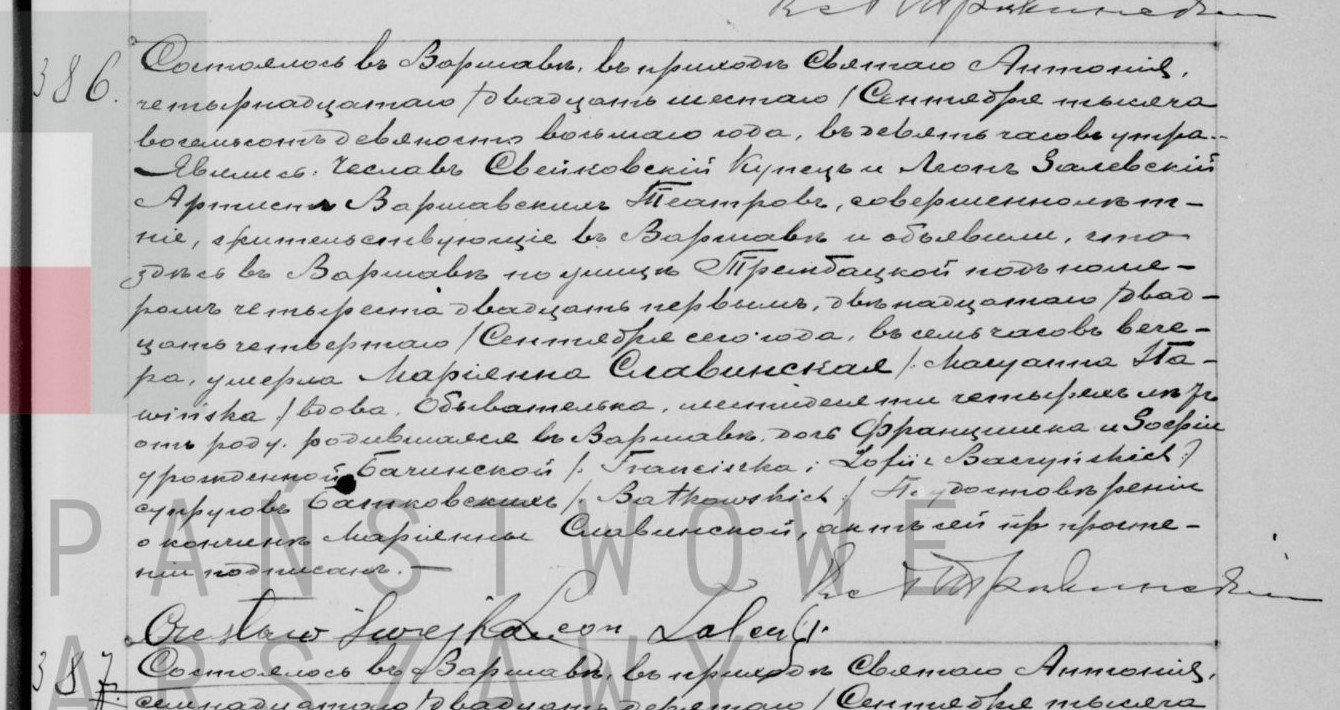 386.
Состоялось въ Варшавѣ, въ приходѣ Святаго Антонія,
четырнадцатаго /двадцать шестаго/ Сентября тысяча
восемьсотъ девяносто восьмаго года, въ девять часовъ утра.
Явились: Чеславъ Свейковскій Купецъ и Леонъ Залевскій
Артистъ Варшавскихъ Театровъ, совершеннолѣт-
ніе, жительствующіе въ Варшавѣ и объявили, что
здѣсь въ Варшавѣ по улицѣ Трембацкой подъ номе-
ромъ четыреста двадцать первымъ, двѣнадцатаго /двад-
цать четвертаго/ Сентября сего года, въ семь часовъ вече-
ра, умерла Маріянна Славинская /: Maryanna Sła-
wińska :/ вдова, Обывателька, шестидесяти четырехъ лѣтъ
отъ роду, родившаяся въ Варшавѣ, дочь Францишка и Зофіи
урожденной Бачинской /: Franciszka i Zofii z Baczyńskich :/
супруговъ Батковскихъ /: Batkowskich :/ По удостовѣреніи
о кончинѣ Маріянны Славинской, актъ сей по прочте-
ніи подписанъ. —
Czesław Swejko Leon Zalewski
387.
Состоялось въ Варшавѣ, въ приходѣ Святаго Антонія,
семнадцатаго /двадцать девятаго/ Сентября тысяча
PAŃSTWOWE
ARSZAWY